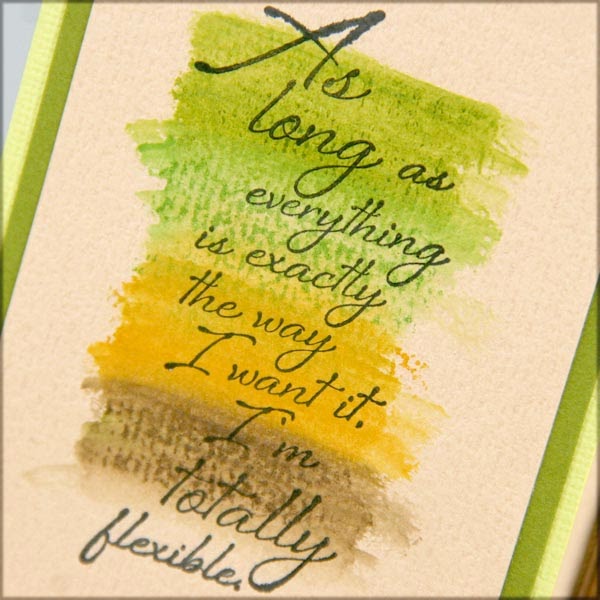 As
long as
everything
is exactly
the way
I want it.
I'm
totally
flexible.